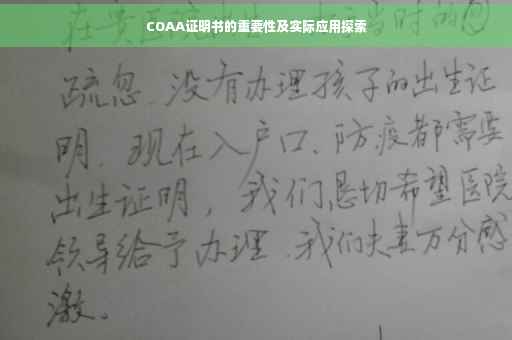 COAA证明书的重要性及实际应用探索
在贵医院出生 当时的
疏忽、没有办理孩子的出生证
明、现在入户口、防疫都需要
出生证明，我们恳切希望医院
领导给予办理、我们夫妻万分感
激。